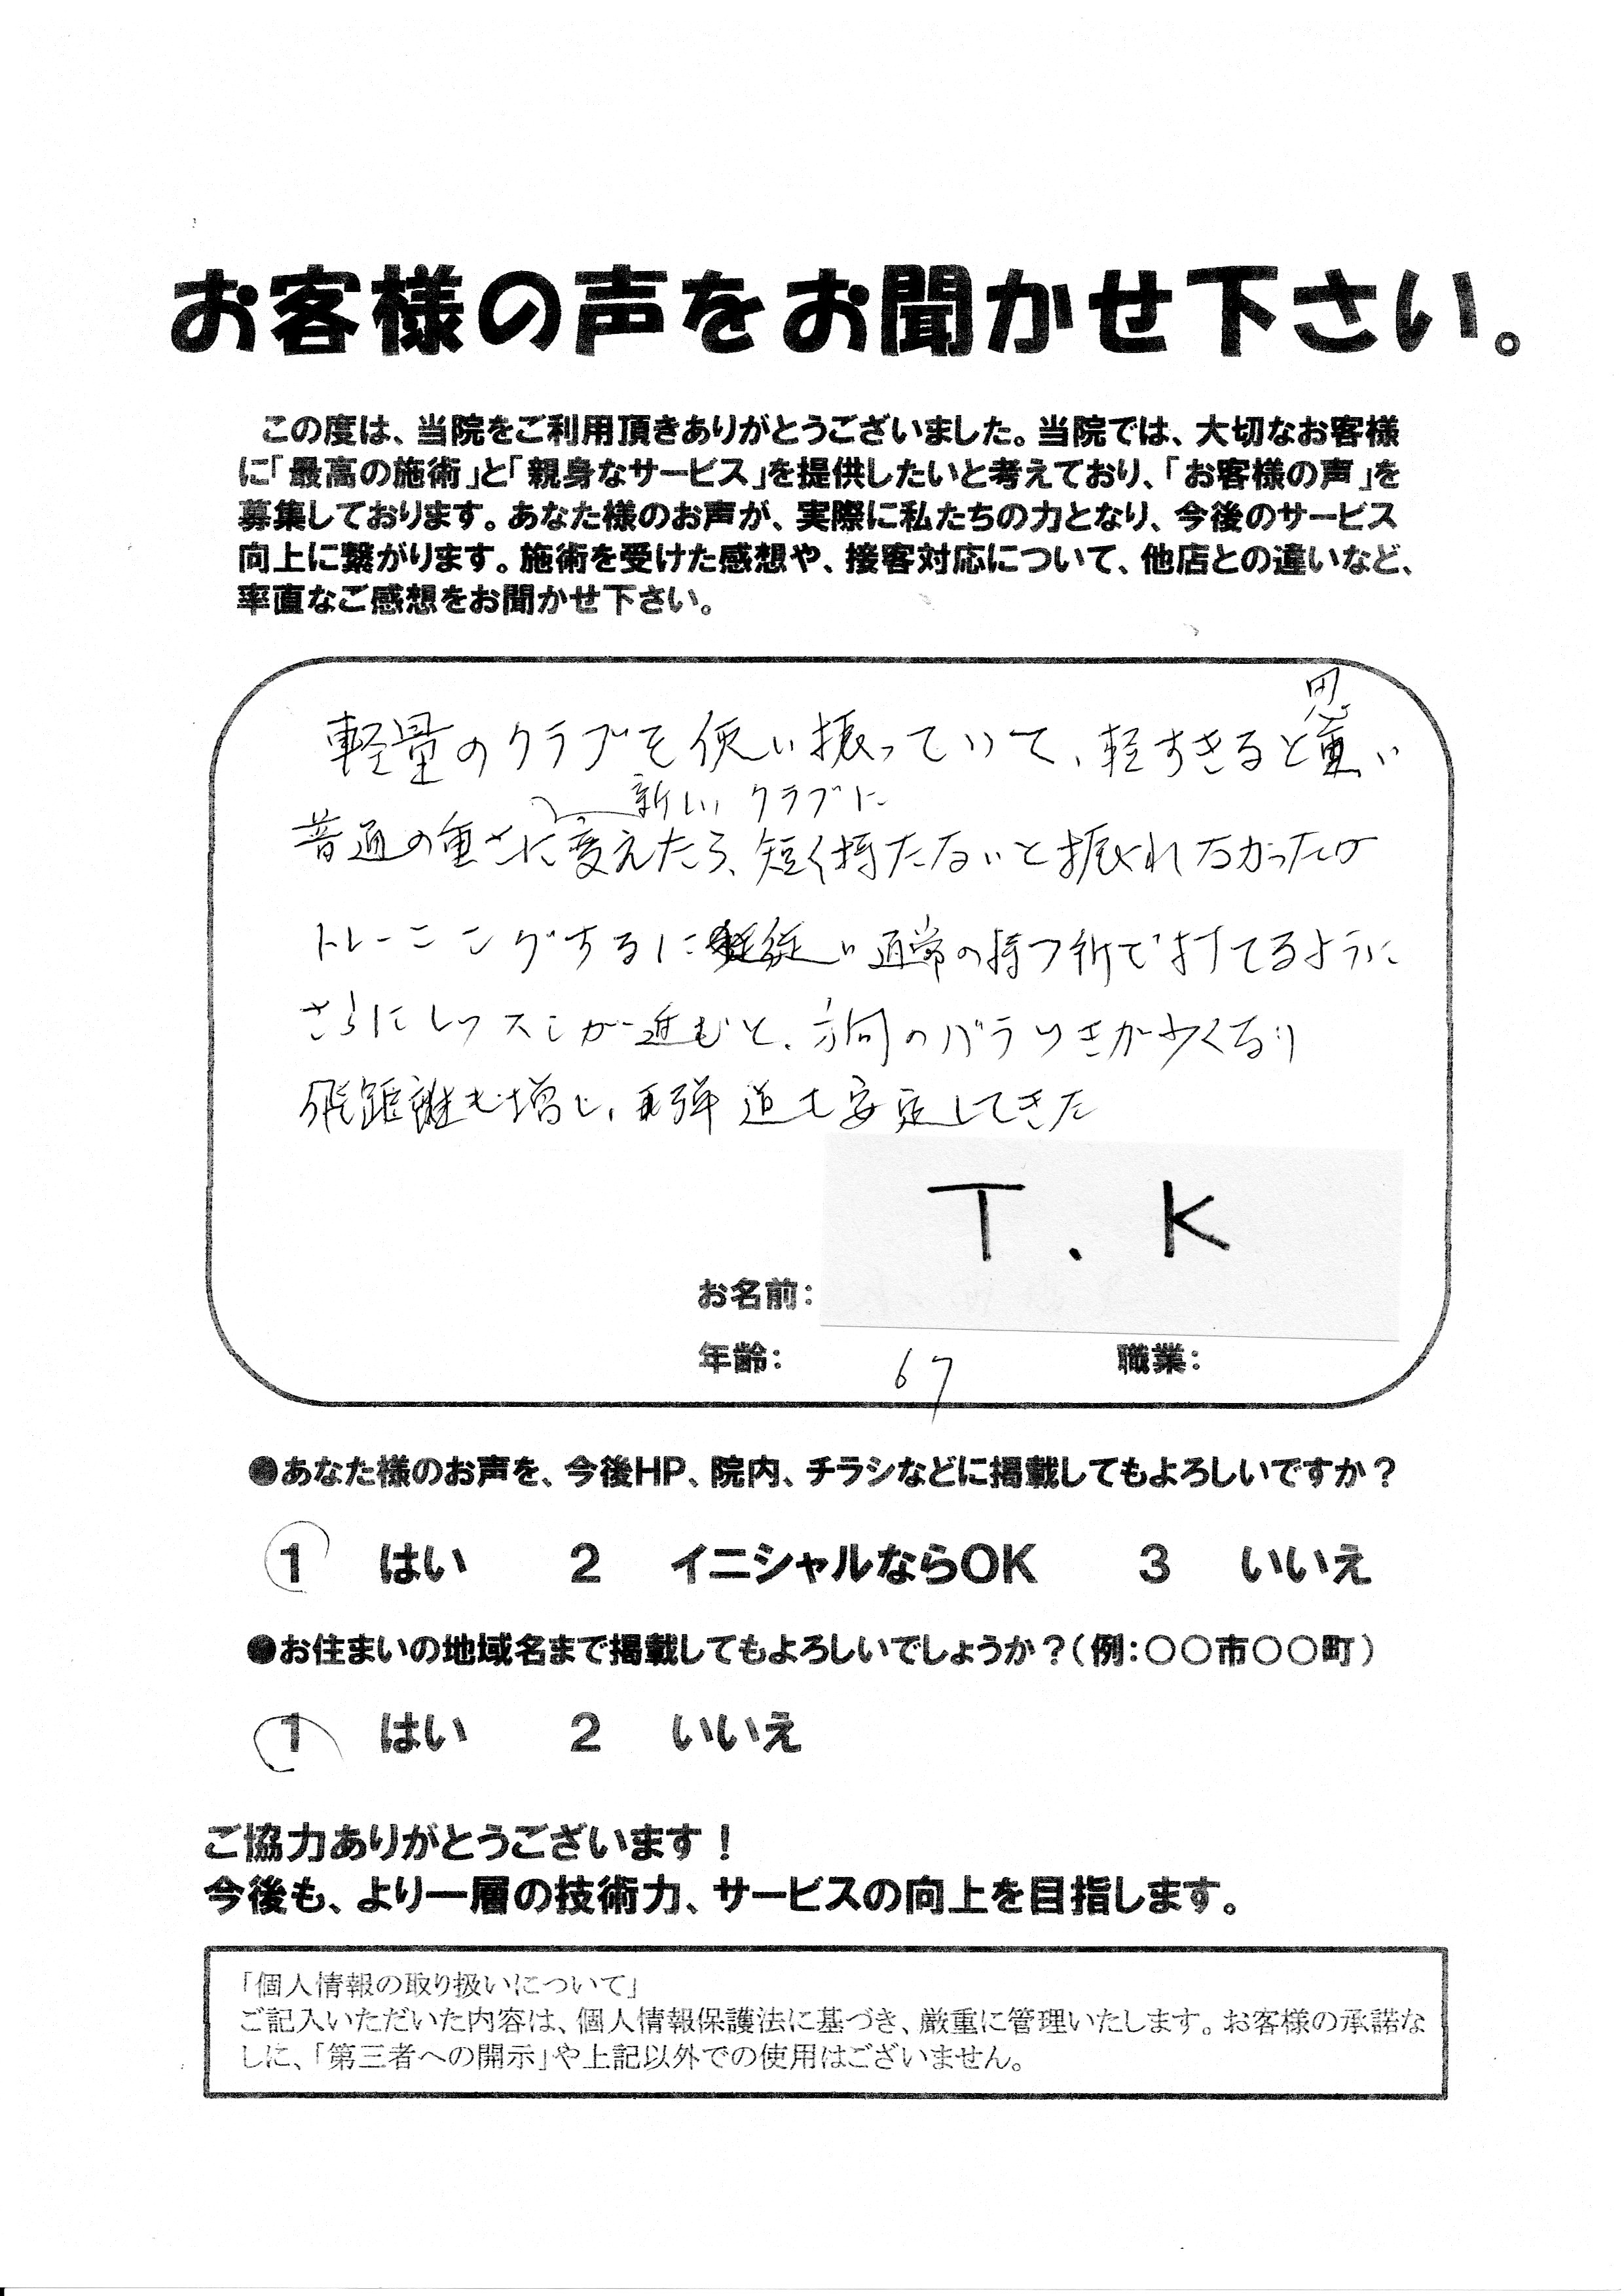 お客様の声をお聞かせ下さい。
この度は、当院をご利用頂きありがとうございました。当院では、大切なお客様
に「最高の施術」と「親身なサービス」を提供したいと考えており、「お客様の声」を
募集しております。あなた様のお声が、実際に私たちの力となり、今後のサービス
向上に繋がります。施術を受けた感想や、接客対応について、他店との違いなど、
率直なご感想をお聞かせ下さい。
軽量のクラブを使い振っていて、軽すぎると思い
新しいクラブに
普通の重さに変えたら、短く持たないと振れなかったが
トレーニングするに従い通常の持つ所で打てるように
さらにレッスンが進むと、方向のバラツキが少くなり
飛距離も増し、弾道も安定してきた
T.K
お名前:
年齢: 67 職業:
●あなた様のお声を、今後HP、院内、チラシなどに掲載してもよろしいですか?
1 はい 2 イニシャルならOK 3 いいえ
●お住まいの地域名まで掲載してもよろしいでしょうか?(例:〇〇市〇〇町)
1 はい 2 いいえ
ご協力ありがとうございます!
今後も、より一層の技術力、サービスの向上を目指します。
「個人情報の取り扱いについて」
ご記入いただいた内容は、個人情報保護法に基づき、厳重に管理いたします。お客様の承諾な
しに、「第三者への開示」や上記以外での使用はございません。